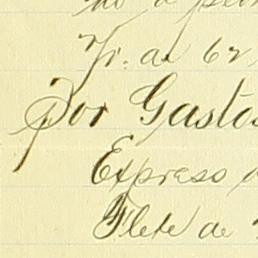 Fr. a 62
Por Gastos
Expreso
Flete de